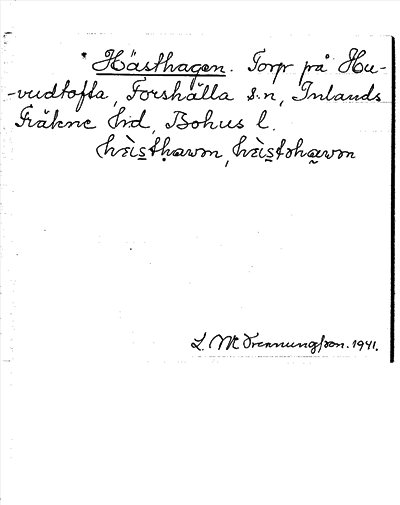 * Hästhagen. Torp på Hu-
-vudtofta, Forshälla s:n, Inlands
Fräkne hd, Bohus l.
hèist̥hawən, hèistəhawən
L. M. Svennungsson. 1941.